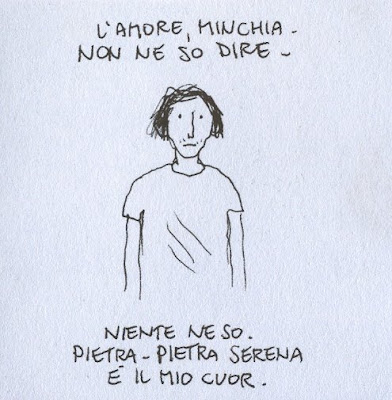 L'AMORE, MINCHIA -
NON NE SO DIRE -
NIENTE NE SO.
PIETRA - PIETRA SERENA
È IL MIO CUOR.